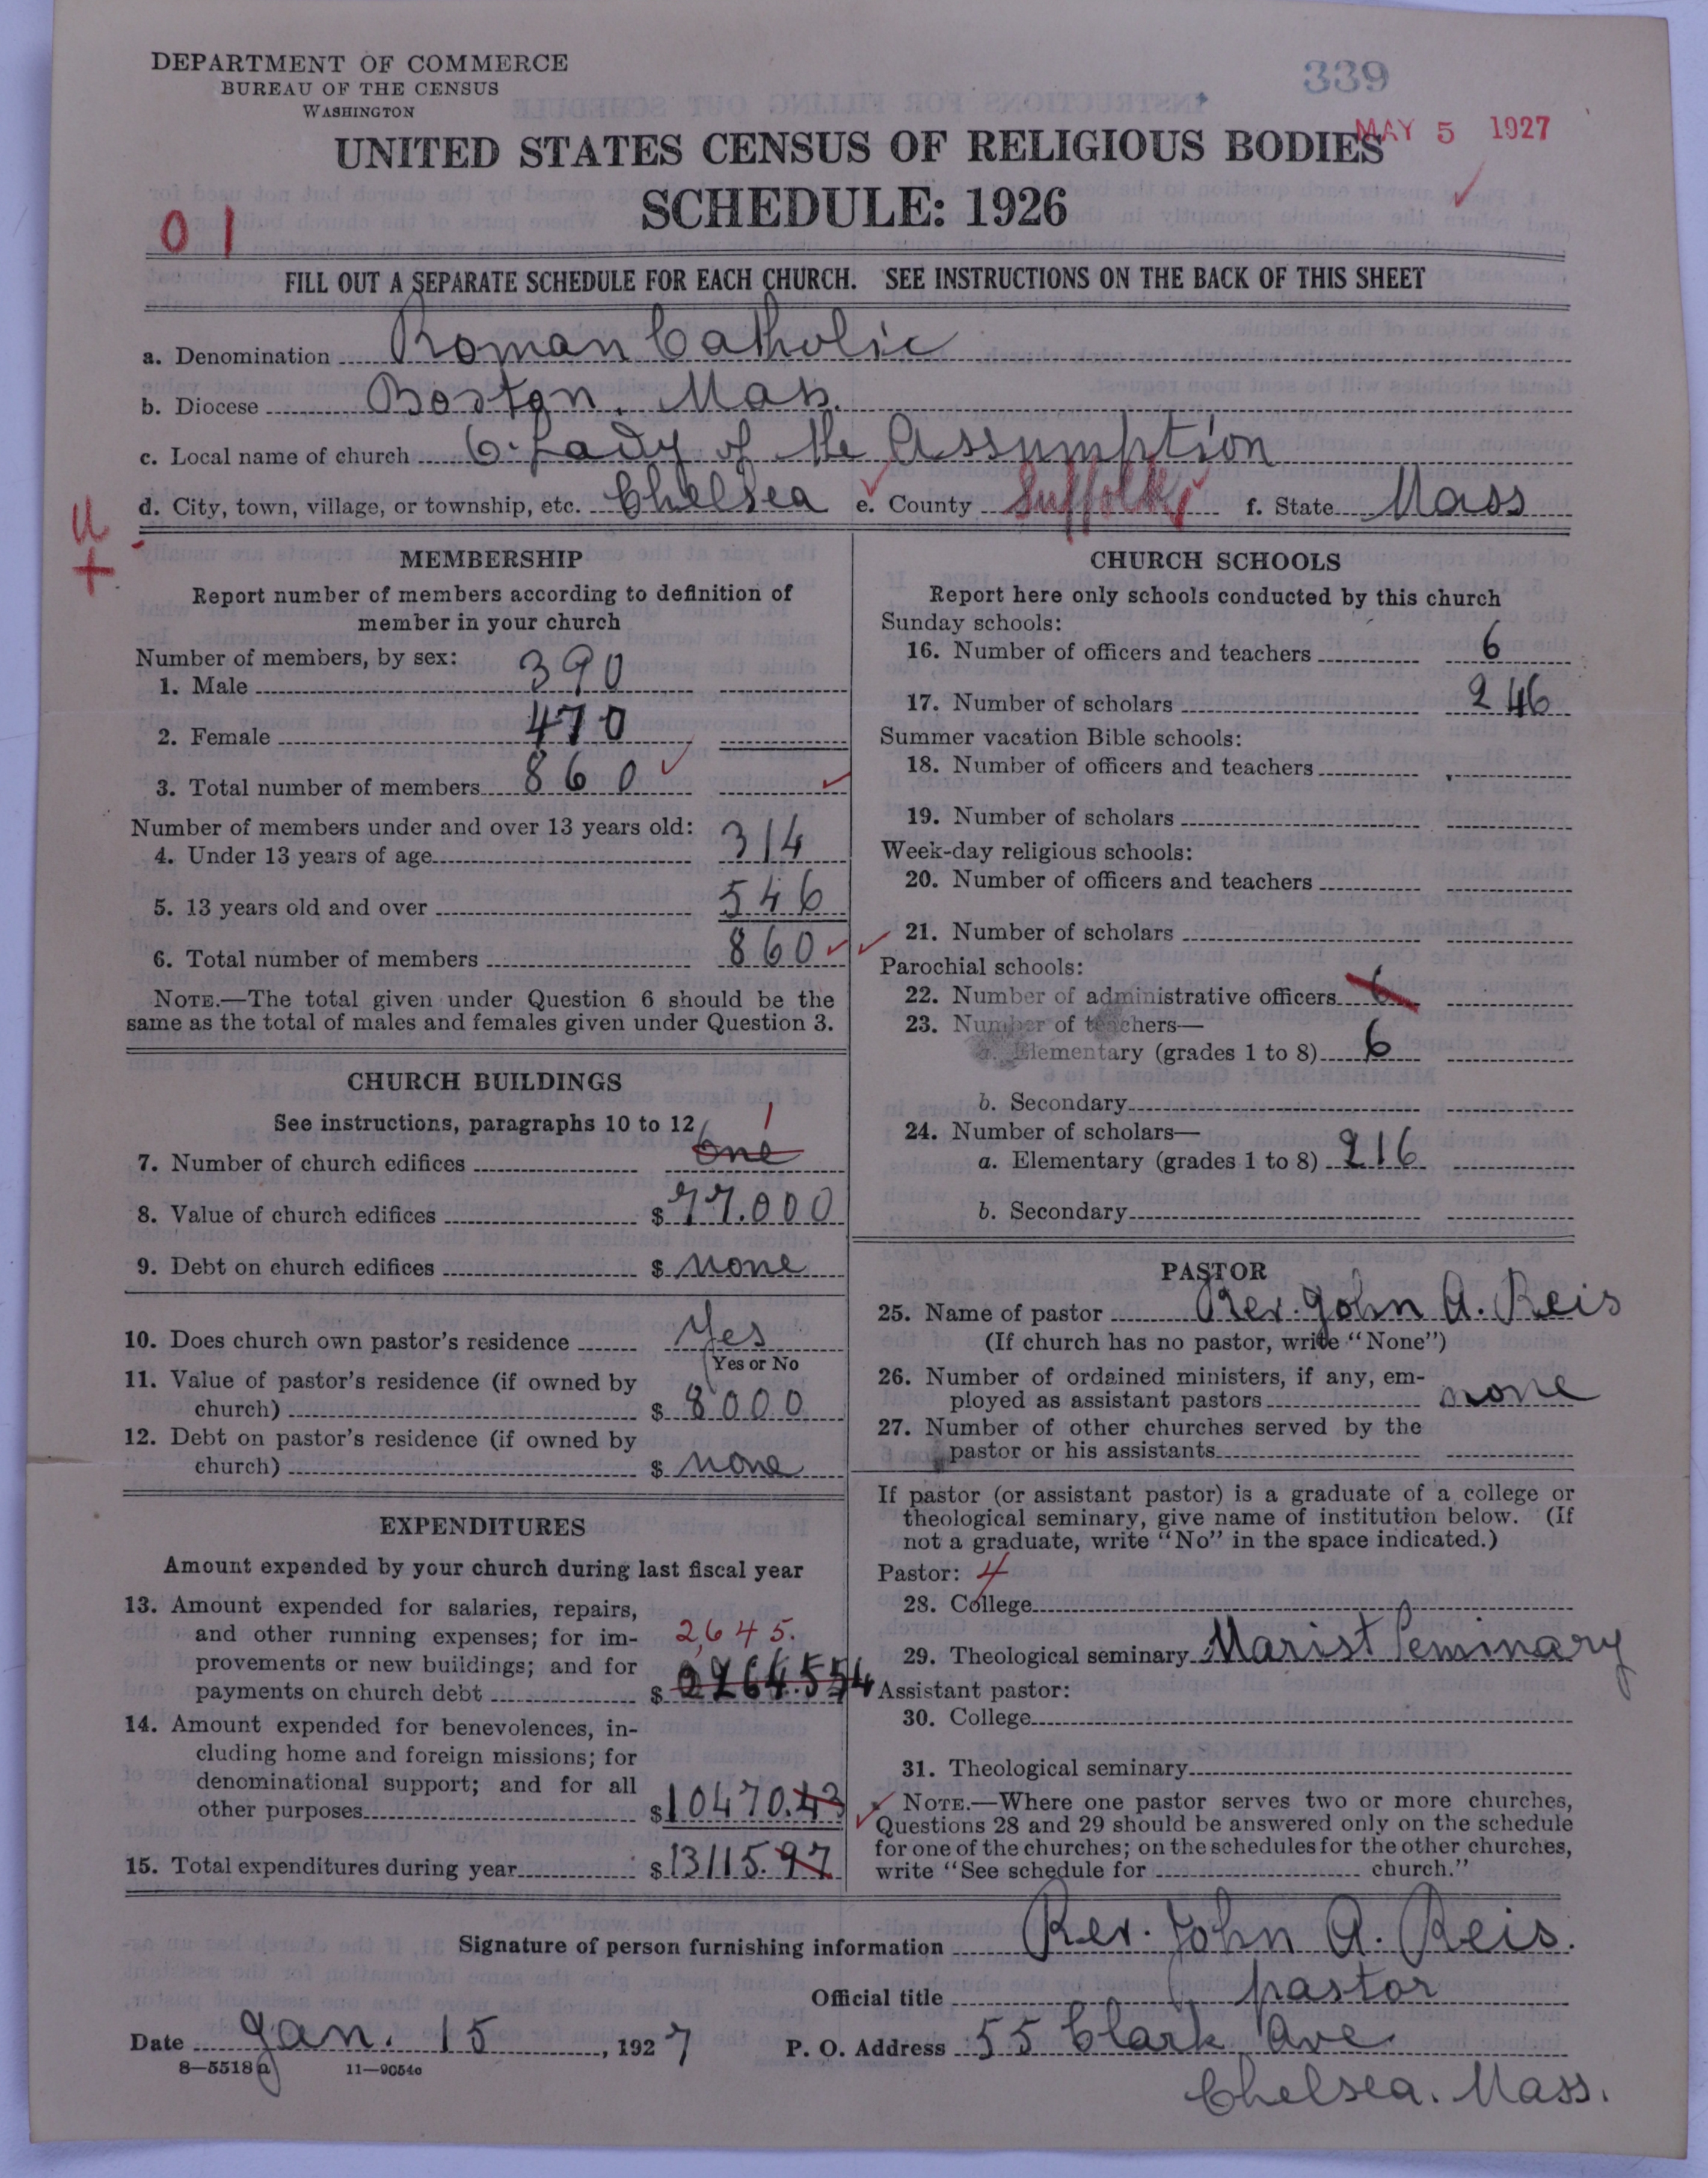 DEPARTMENT OF COMMERCE
BUREAU OF THE CENSUS
WASHINGTON
339
MAY 5 1927
UNITED STATES CENSUS OF RELIGIOUS BODIES
SCHEDULE: 1926
01
FILL OUT A SEPARATE SCHEDULE FOR EACH CHURCH. SEE INSTRUCTIONS ON THE BACK OF THIS SHEET
a. Denomination Roman Catholic
b. Diocese Boston. Mass.
c. Local name of church O. Lady of the Assumption
d. City, town, village, or township, etc. Chelsea e. County Suffolk f. State Mass
U
+
MEMBERSHIP
Report number of members according to definition of
member in your church
Number of members, by sex:
1. Male 390
2. Female 470
3. Total number of members 860
Number of members under and over 13 years old:
4. Under 13 years of age 314
5. 13 years old and over 546
6. Total number of members 860
NOTE.—The total given under Question 6 should be the
same as the total of males and females given under Question 3.
CHURCH BUILDINGS
See instructions, paragraphs 10 to 12
7. Number of church edifices one 1
8. Value of church edifices $77.000
9. Debt on church edifices $ none
10. Does church own pastor's residence Yes
Yes or No
11. Value of pastor's residence (if owned by
church) $ 8000
12. Debt on pastor's residence (if owned by
church) $ none
EXPENDITURES
Amount expended by your church during last fiscal year
13. Amount expended for salaries, repairs,
and other running expenses; for im-
provements or new buildings; and for
payments on church debt $ 2,645.
14. Amount expended for benevolences, in-
cluding home and foreign missions; for
denominational support; and for all
other purposes $10470.43
15. Total expenditures during year $13115.97
CHURCH SCHOOLS
Report here only schools conducted by this church
Sunday schools:
16. Number of officers and teachers 6
17. Number of scholars 246
Summer vacation Bible schools:
18. Number of officers and teachers
19. Number of scholars
Week-day religious schools:
20. Number of officers and teachers
21. Number of scholars
Parochial schools:
22. Number of administrative officers 6
23. Number of teachers—
a. Elementary (grades 1 to 8) 6
b. Secondary
24. Number of scholars—
a. Elementary (grades 1 to 8) 216
b. Secondary
PASTOR
25. Name of pastor Rev. John A. Reis
(If church has no pastor, write "None")
26. Number of ordained ministers, if any, em-
ployed as assistant pastors none
27. Number of other churches served by the
pastor or his assistants
If pastor (or assistant pastor) is a graduate of a college or
theological seminary, give name of institution below. (If
not a graduate, write "No" in the space indicated.)
Pastor: 4
28. College
29. Theological seminary Marist Seminary
Assistant pastor:
30. College
31. Theological seminary
NOTE.—Where one pastor serves two or more churches,
Questions 28 and 29 should be answered only on the schedule
for one of the churches; on the schedules for the other churches,
write "See schedule for church."
Signature of person furnishing information Rev. John A. Reis.
Official title pastor
Date Jan. 15, 1927 P. O. Address 55 Clark Ave
Chelsea. Mass.
8—5518a 11—9054c